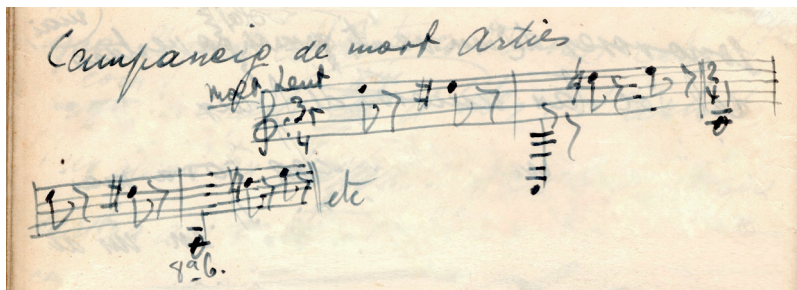 Campaneig de mort Arties
molt Lent
3
4
2
4
etc
8ª b.